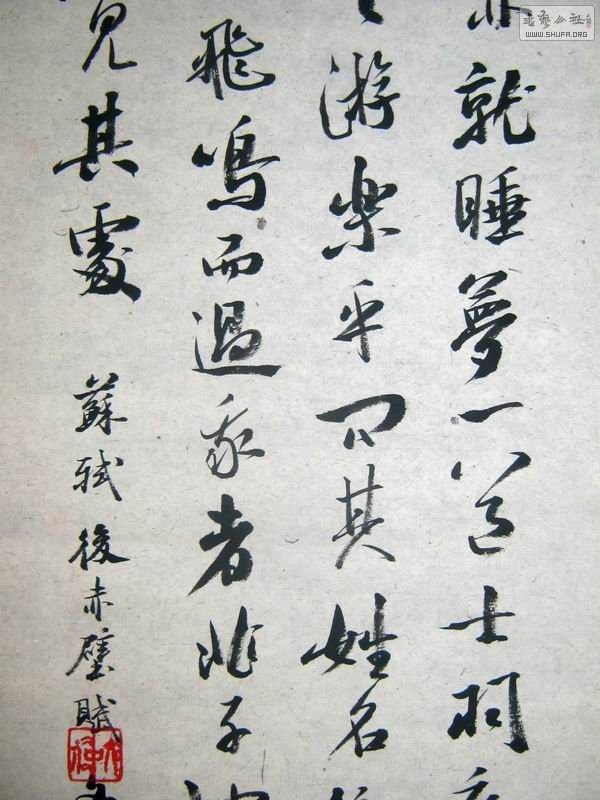 就睡夢一道士羽
游樂乎問其姓名
飛鳴而過我者非子
見其處
蘇軾後赤壁賦
WWW.SHUFA.ORG